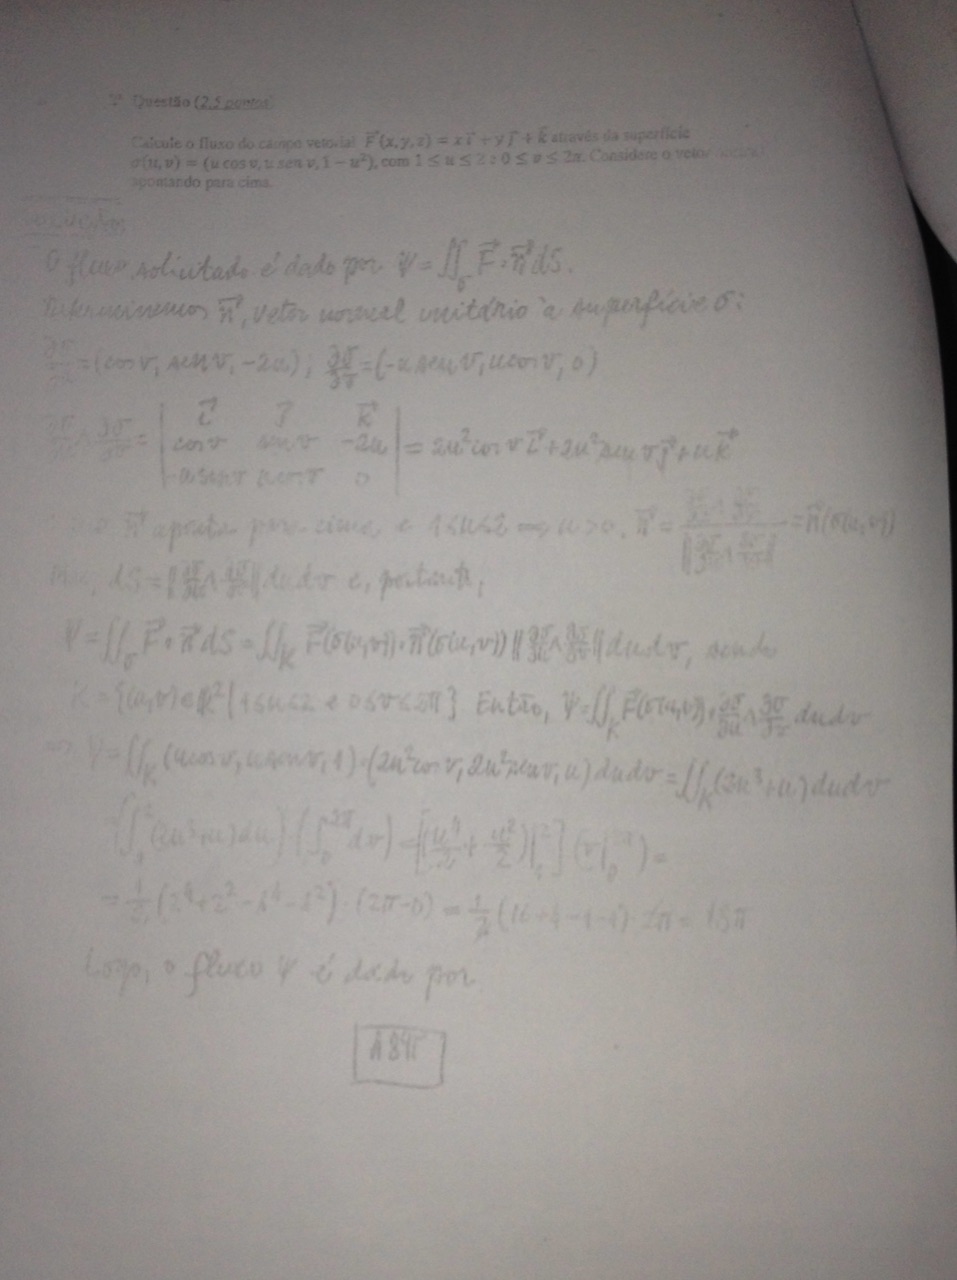 Questão (2,5 pontos)
Calcule o fluxo do campo vetorial F⃗(x, y, z) = x i⃗ + y j⃗ + k⃗ através da superfície
σ(u, v) = (u cos v, u sen v, 1 − u²), com 1 ≤ u ≤ 2 e 0 ≤ v ≤ 2π. Considere o vetor
apontando para cima.
O fluxo solicitado é dado por Ψ = ∬_σ F⃗·n⃗ dS.
Determinemos n⃗, vetor normal unitário à superfície σ:
∂σ/∂u = (cos v, sen v, -2u); ∂σ/∂v = (-u sen v, u cos v, 0)
∂σ/∂u ∧ ∂σ/∂v = | i⃗ j⃗ k⃗ |
| cos v sen v -2u | = 2u² cos v i⃗ + 2u² sen v j⃗ + u k⃗
| -u sen v u cos v 0 |
n⃗ aponta para cima e 1≤u≤2 ⇒ u>0. n⃗ = (∂σ/∂u ∧ ∂σ/∂v) / ‖∂σ/∂u ∧ ∂σ/∂v‖ = n⃗(σ(u,v))
dS = ‖∂σ/∂u ∧ ∂σ/∂v‖ du dv e, portanto,
Ψ = ∬_σ F⃗·n⃗ dS = ∬_K F⃗(σ(u,v))·n⃗(σ(u,v)) ‖∂σ/∂u ∧ ∂σ/∂v‖ du dv, sendo
K = {(u,v)∈ℝ² | 1≤u≤2 e 0≤v≤2π}. Então, Ψ = ∬_K F⃗(σ(u,v))·∂σ/∂u ∧ ∂σ/∂v du dv
⇒ Ψ = ∬_K (u cos v, u sen v, 1)·(2u² cos v, 2u² sen v, u) du dv = ∬_K (2u³+u) du dv
(∫₁² (2u³+u) du)·(∫₀^2π dv) = [(u⁴/2 + u²/2)|₁²] (v|₀^2π) =
= 1/2 (2⁴+2²-1⁴-1²)·(2π-0) = 1/2 (16+4-1-1)·2π = 18π
Logo, o fluxo Ψ é dado por
18π